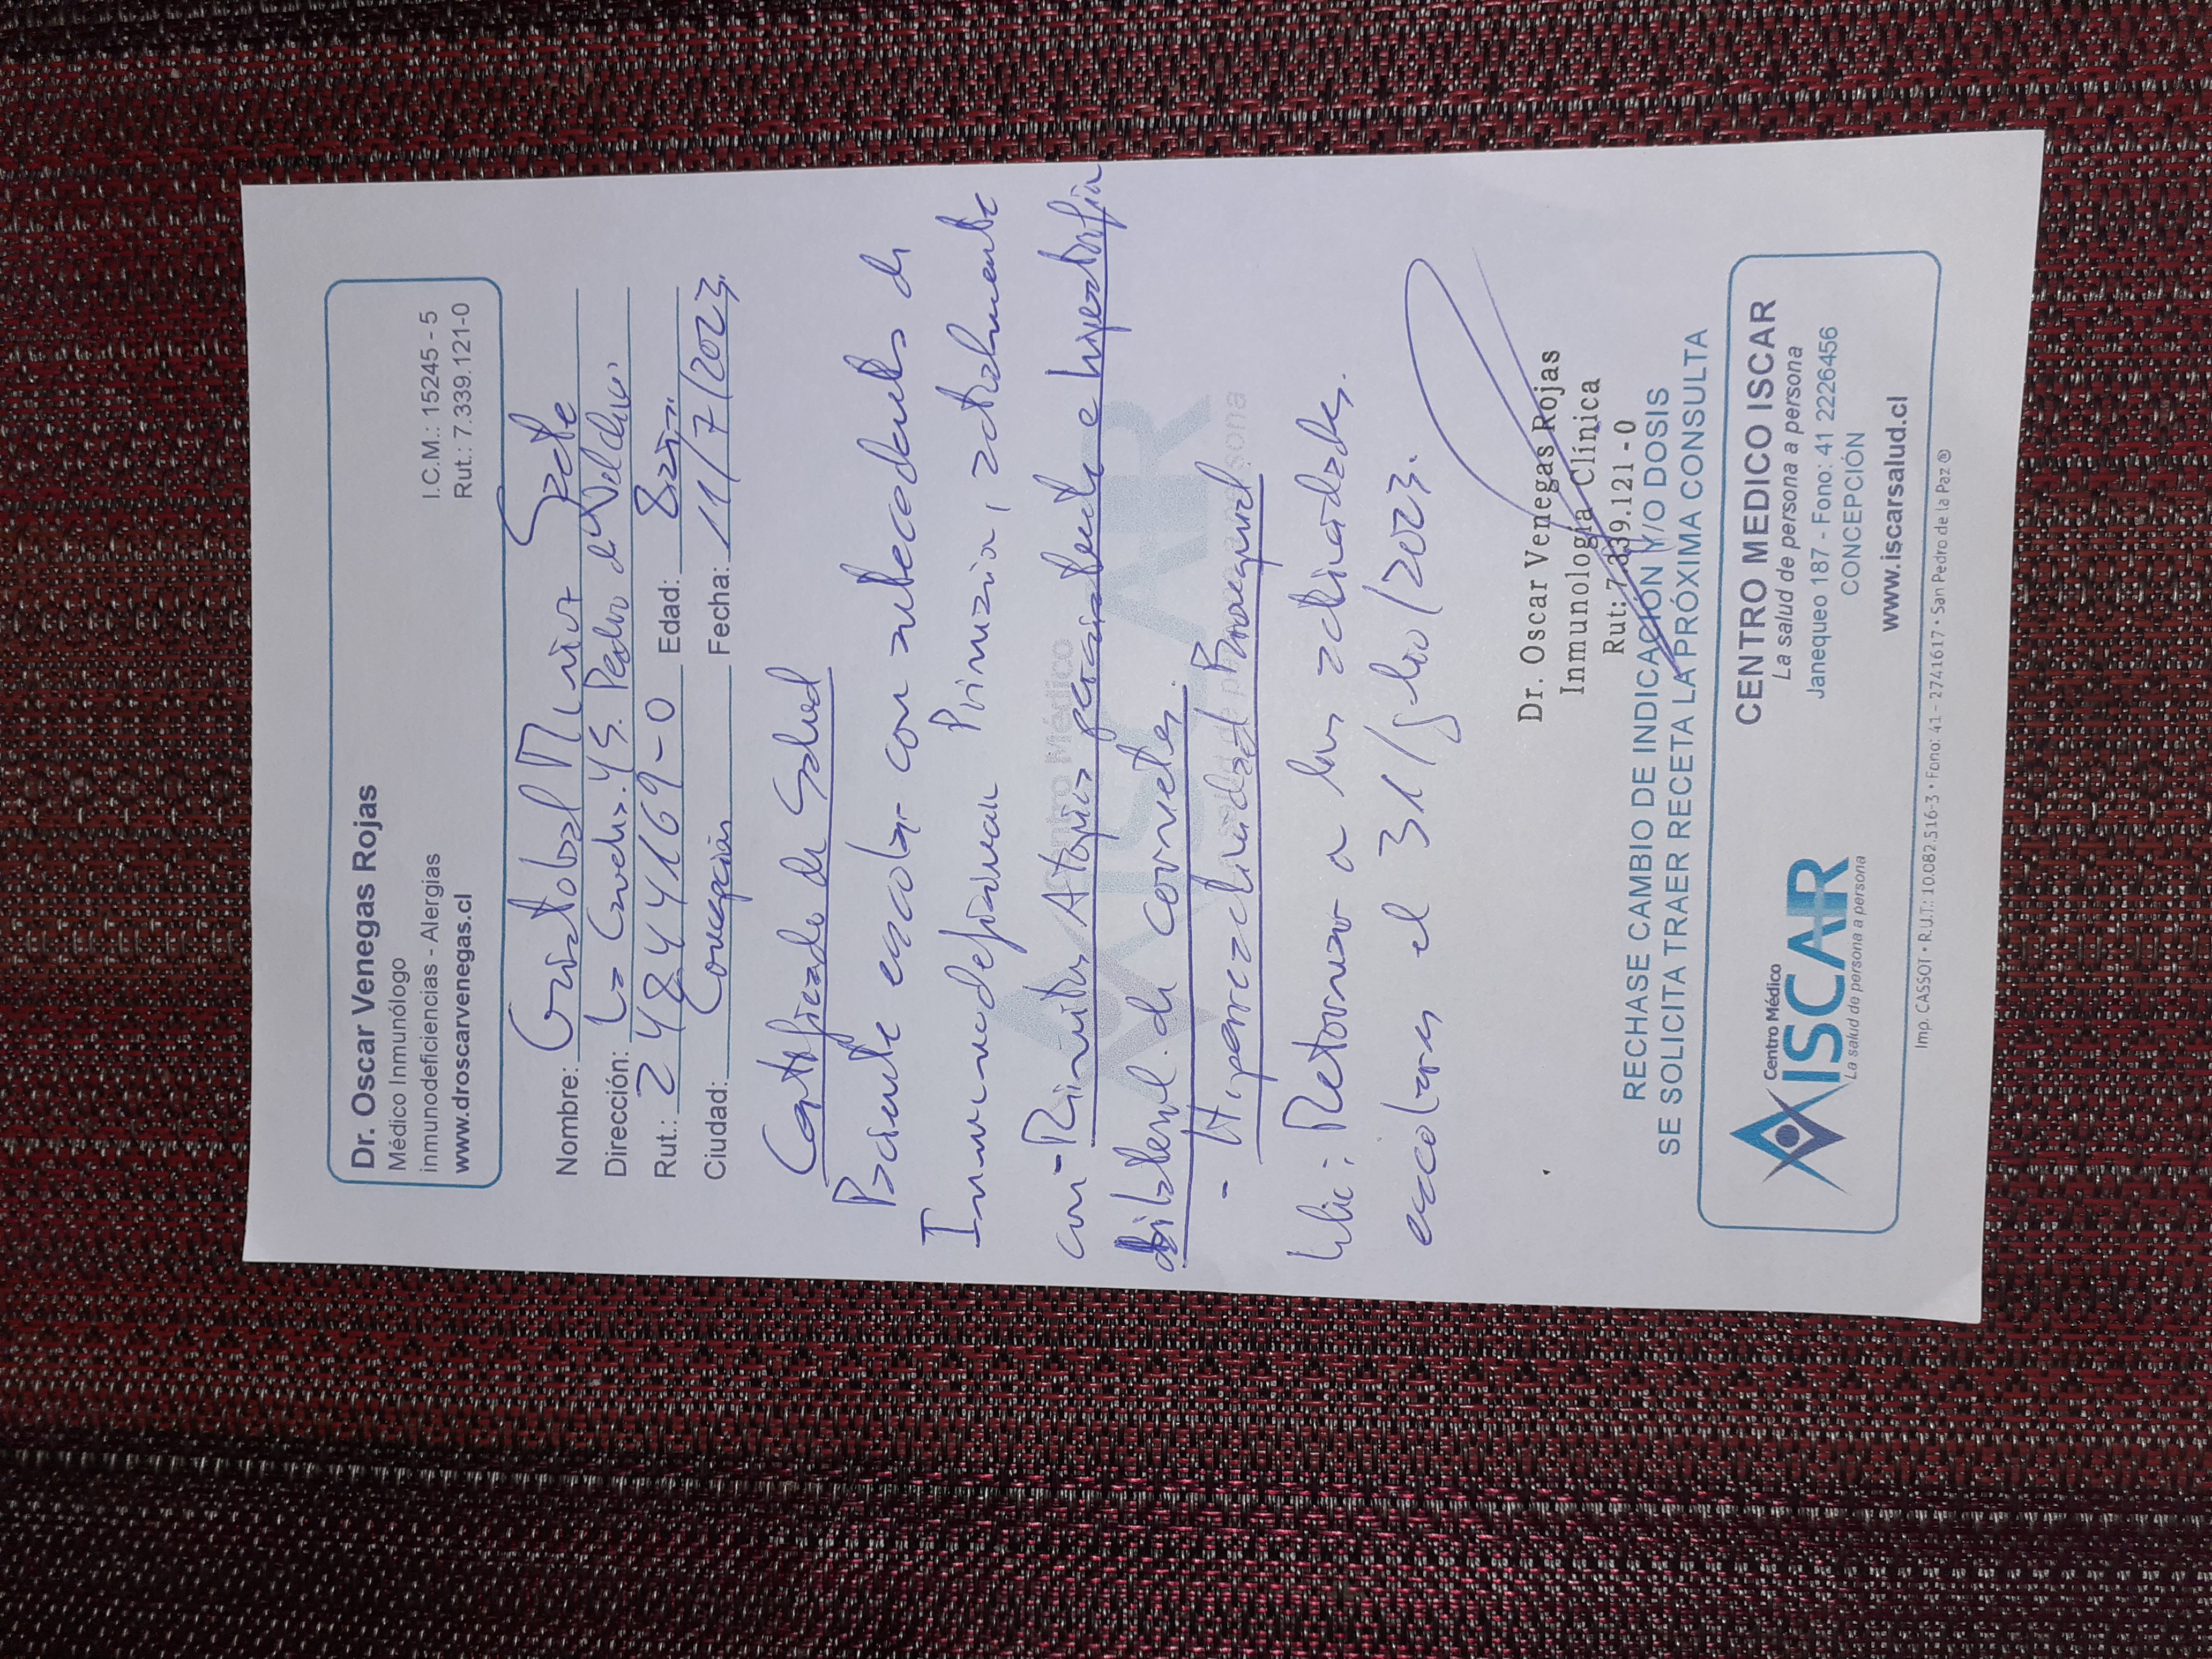 Dr. Oscar Venegas Rojas
Médico Inmunólogo
inmunodeficiencias - Alergias
www.droscarvenegas.cl
I.C.M.: 15245 - 5
Rut.: 7.339.121-0
Nombre: Cristobal
Dirección: S. Pedro d
Rut.: 24844169-0 Edad: 8 años
Ciudad: Concepción Fecha: 11/7/2023
Certificado de Salud
Paciente escolar con antecedentes de
Inmunodeficiencia Primaria, actualmente
con - Rinitis Atopica persistente e hipertrofia
bilateral de cornetes.
- Hiperreactividad Bronquial
Retornar a sus actividades
escolares el 31/julio/2023.
Dr. Oscar Venegas Rojas
Inmunología Clínica
Rut: 7.339.121-0
RECHASE CAMBIO DE INDICACIÓN Y/O DOSIS
SE SOLICITA TRAER RECETA LA PRÓXIMA CONSULTA
Centro Médico
ISCAR
La salud de persona a persona
CENTRO MEDICO ISCAR
La salud de persona a persona
Janequeo 187 - Fono: 41 2226456
CONCEPCIÓN
www.iscarsalud.cl
Imp. CASSOT • R.U.T.: 10.082.516-3 • Fono: 41 - 2741617 • San Pedro de la Paz ®